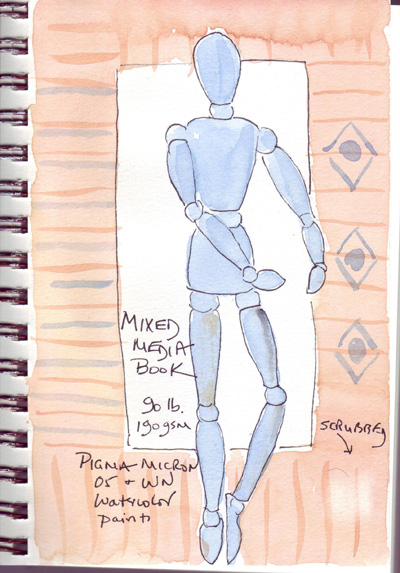 MIXED
MEDIA
BOOK
90 lb.
190gsm
SCRUBBED
PIGMA MICRON
05 + WN
Watercolor
paint